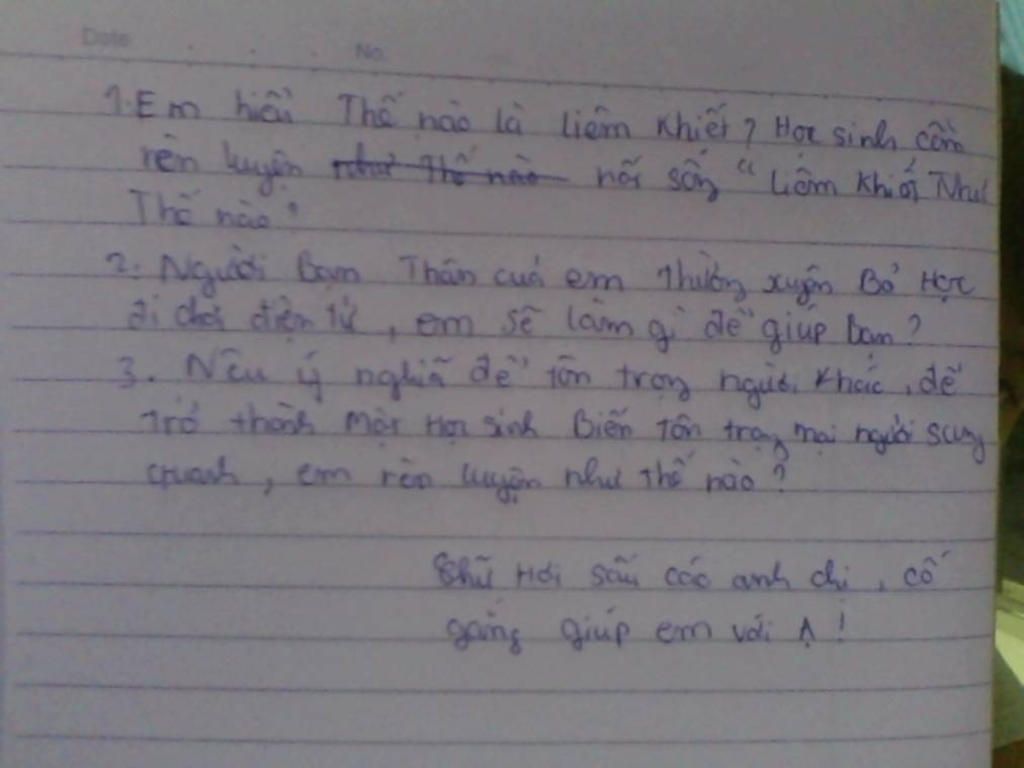 Date No.
1. Em hiểu Thế nào là Liêm Khiết? Học sinh cần
rèn luyện như Thế nào nối sống “Liêm Khiết Như
Thế nào?
2. Người Bạn Thân của em Thường xuyên Bỏ Học
đi chơi điện tử, em sẽ làm gì để giúp bạn?
3. Nêu ý nghĩã để tôn trọng người khác, để
trở thành Một Học sinh Biến tôn trọng mọi người sung
quanh, em rèn luyện như thế nào?
Chữ Hơi sấu các anh chị, cố
gắng giúp em với Ạ!